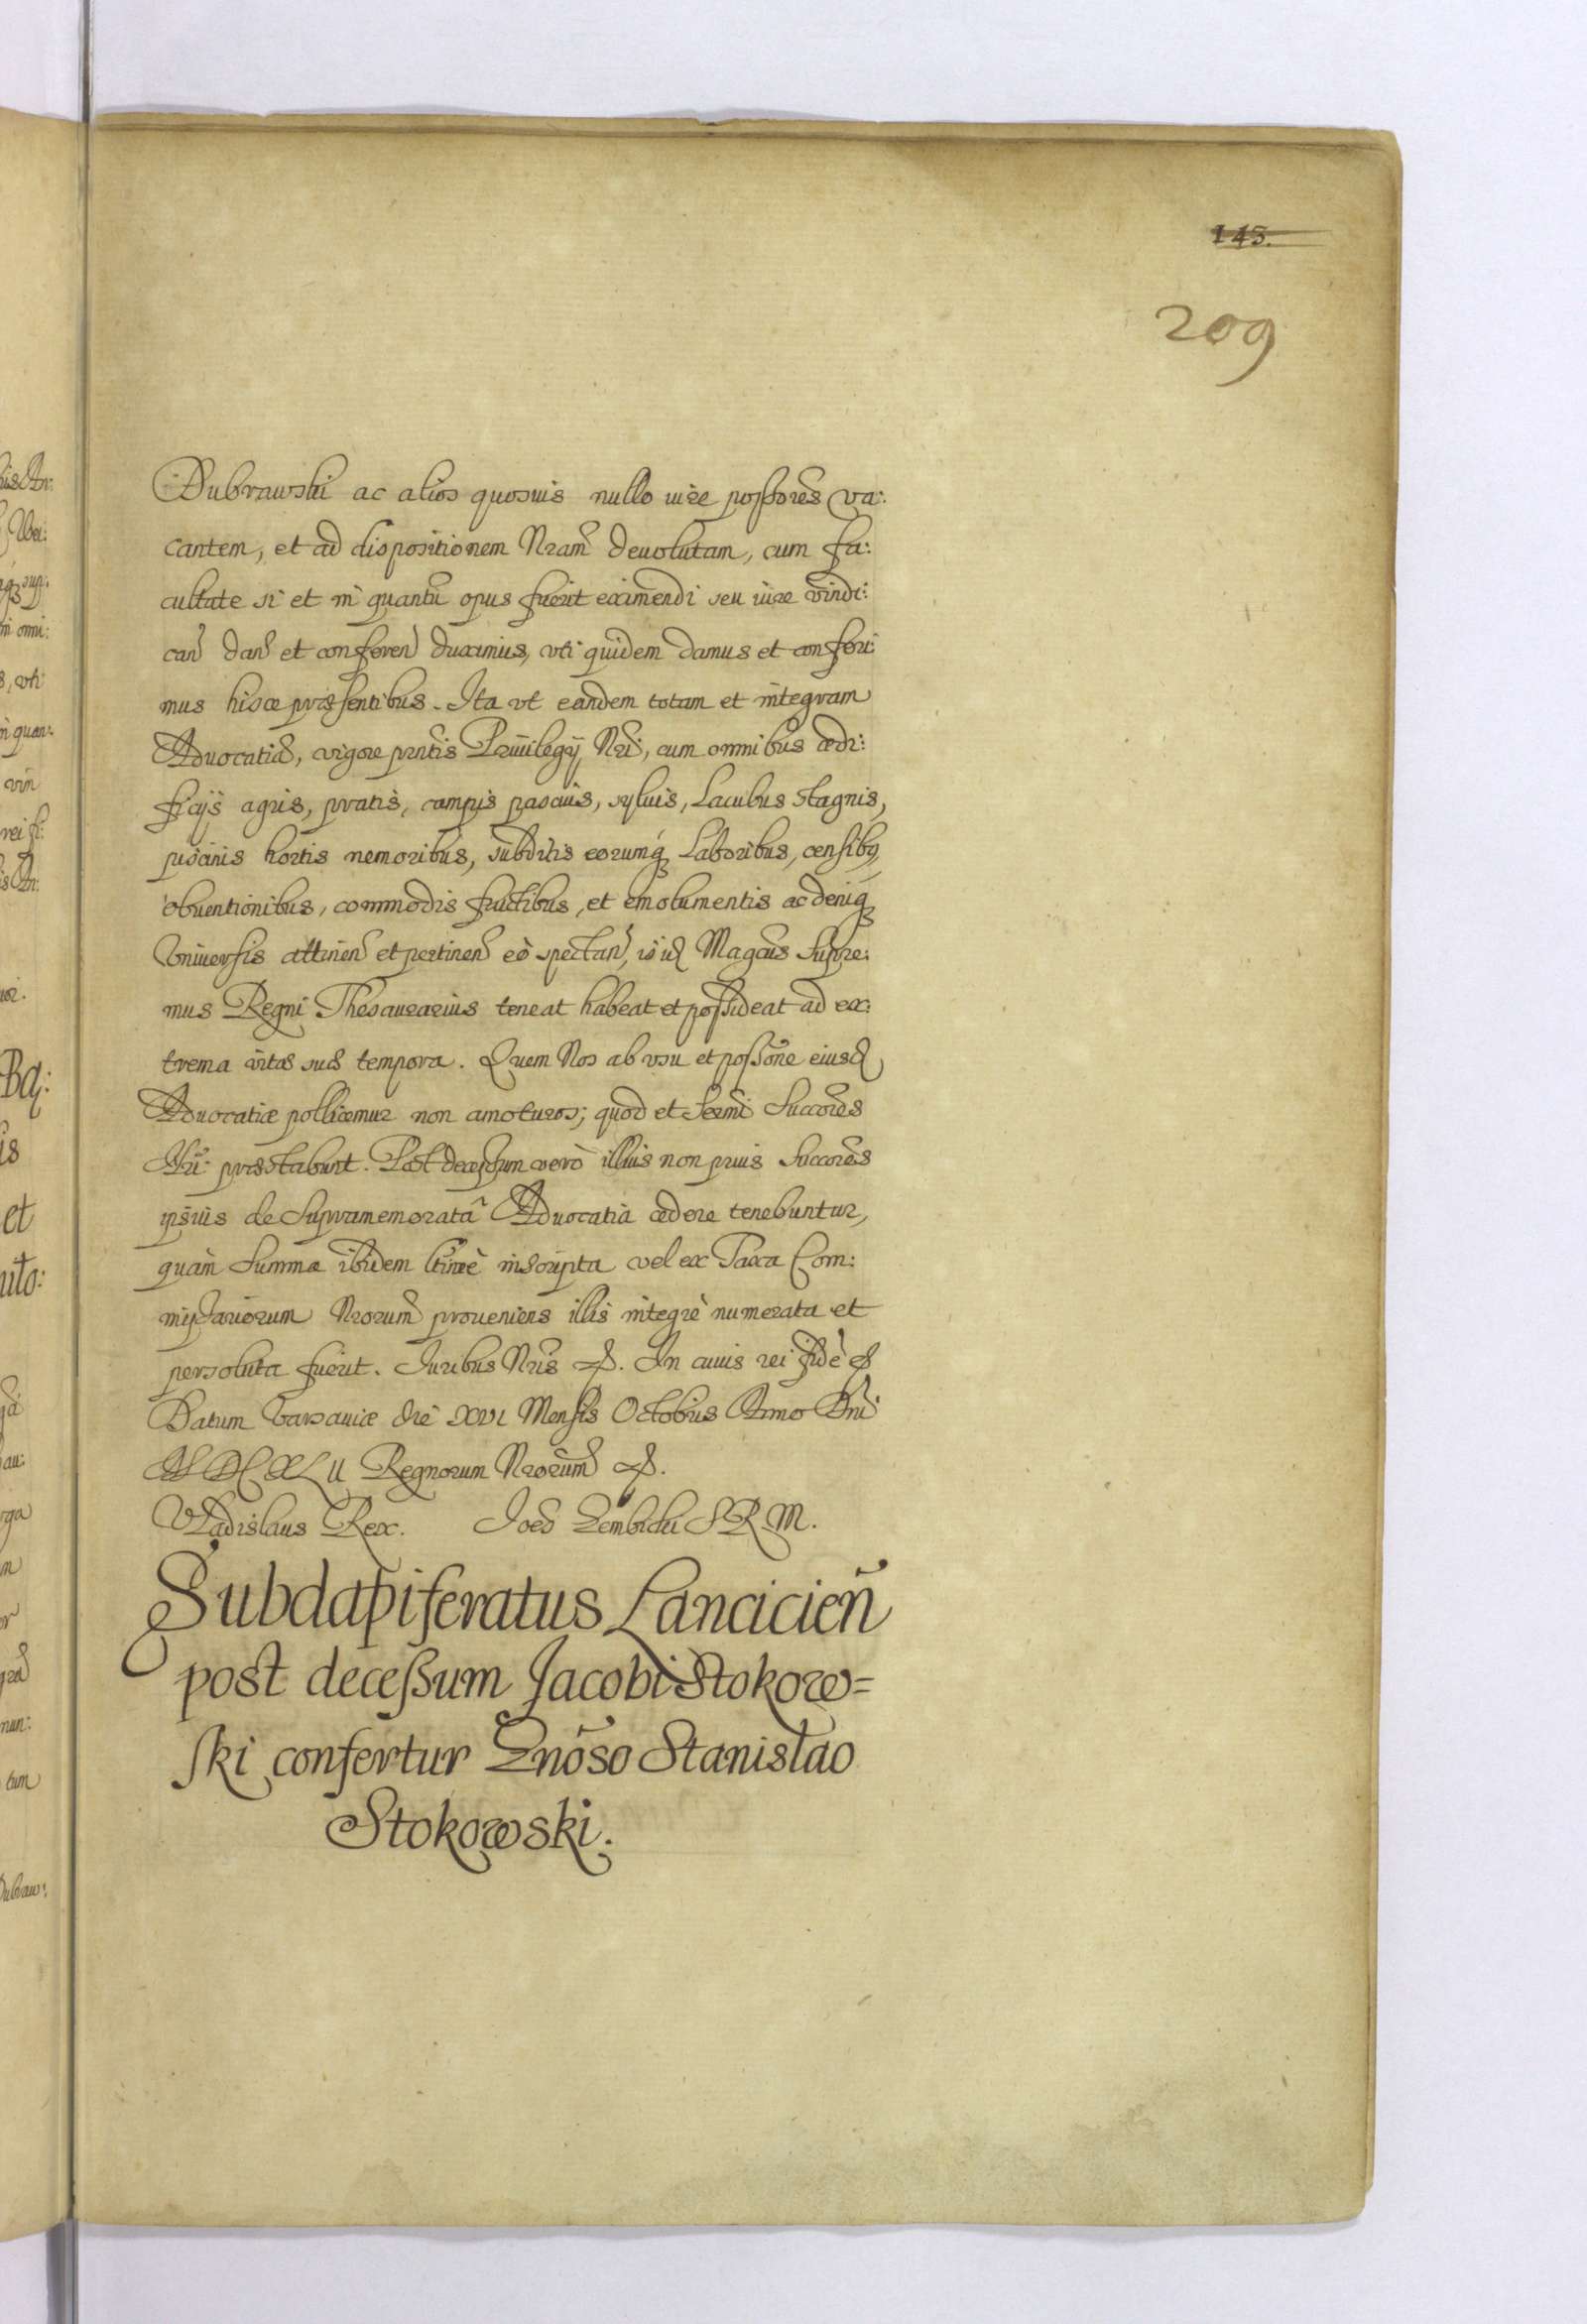 143.
209
Dubrawski ac alios quosuis nullo iure possores va:
cantem, et ad dispositionem Nram deuolutam, cum fa:
cultate si et in quantũ opus fuerit eximendi seu iure vindi:
can dan et conferen duximus, vti quidem damus et conferi:
mus hisce præsentibus. Ita vt eandem totam et integram
Aduocatiã, vigore pntis Priuilegij Nri, cum omnibus ædi:
ficijs agris, pratis, campis pascuis, syluis, Lacubus stagnis,
piscinis hortis nemoribus, subditis eorumq Laboribus, censibq,
obuentionibus, commodis fructibus, et emolumentis ac deniq
Vniuersis attinen et pertinen eò spectan, Magcus Supre:
mus Regni Thesaurarius teneat habeat et possideat ad ex:
trema vitæ suæ tempora. Quem Nos ab vsu et possone eiusd
Aduocatiæ pollicemur non amoturos; quod et Sermi Succores
Nri præstabunt. Post decessum verò illius non prius Succores
ipsius de Supramemoratâ Aduocatia cedere tenebuntur,
quàm Summa ibidem ltimè inscripta vel ex Taxa Com:
missariorum Nrorum proueniens illis integrè numerata et
persoluta fuerit. Iuribus Nris &. In cuius rei fidẽ &
Datum Varsauiæ die XVI Mensis Octobris Anno Dni
MDCXLII Regnorum Nrorum &.
Vladislaus Rex. Joes Gembicki S R M.
Subdapiferatus Lancicieñ
post decessum Jacobi Stokow=
ski confertur Gnõso Stanislao
Stokowski.